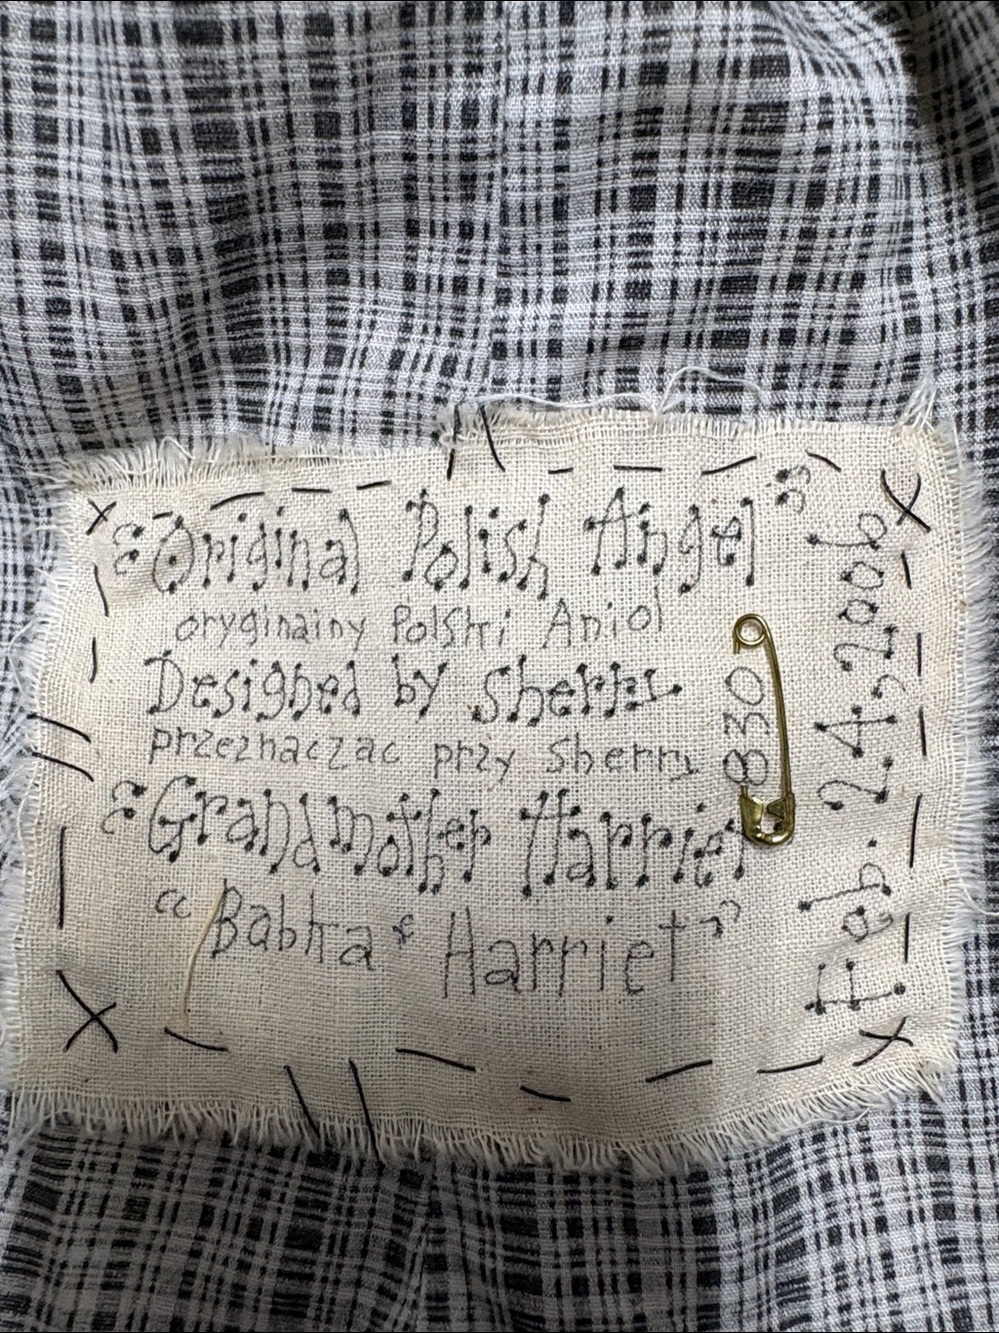 "Original Polish Angel"
oryginainy Polski Aniol
Designed by Sherry
przeznaczac przy Sherry
"Grandmother Harriet
"Babka" Harriet"
830
Feb. 24, 2006